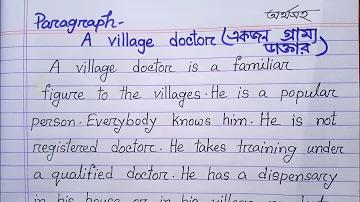 অর্থসহ
Paragraph-
A village doctor (একজন গ্রাম্য
ডাক্তার)
A village doctor is a familiar
figure to the villages. He is a popular
person. Everybody knows him. He is not
registered doctor. He takes training under
a qualified doctor. He has a dispensary
in his house or in his village market